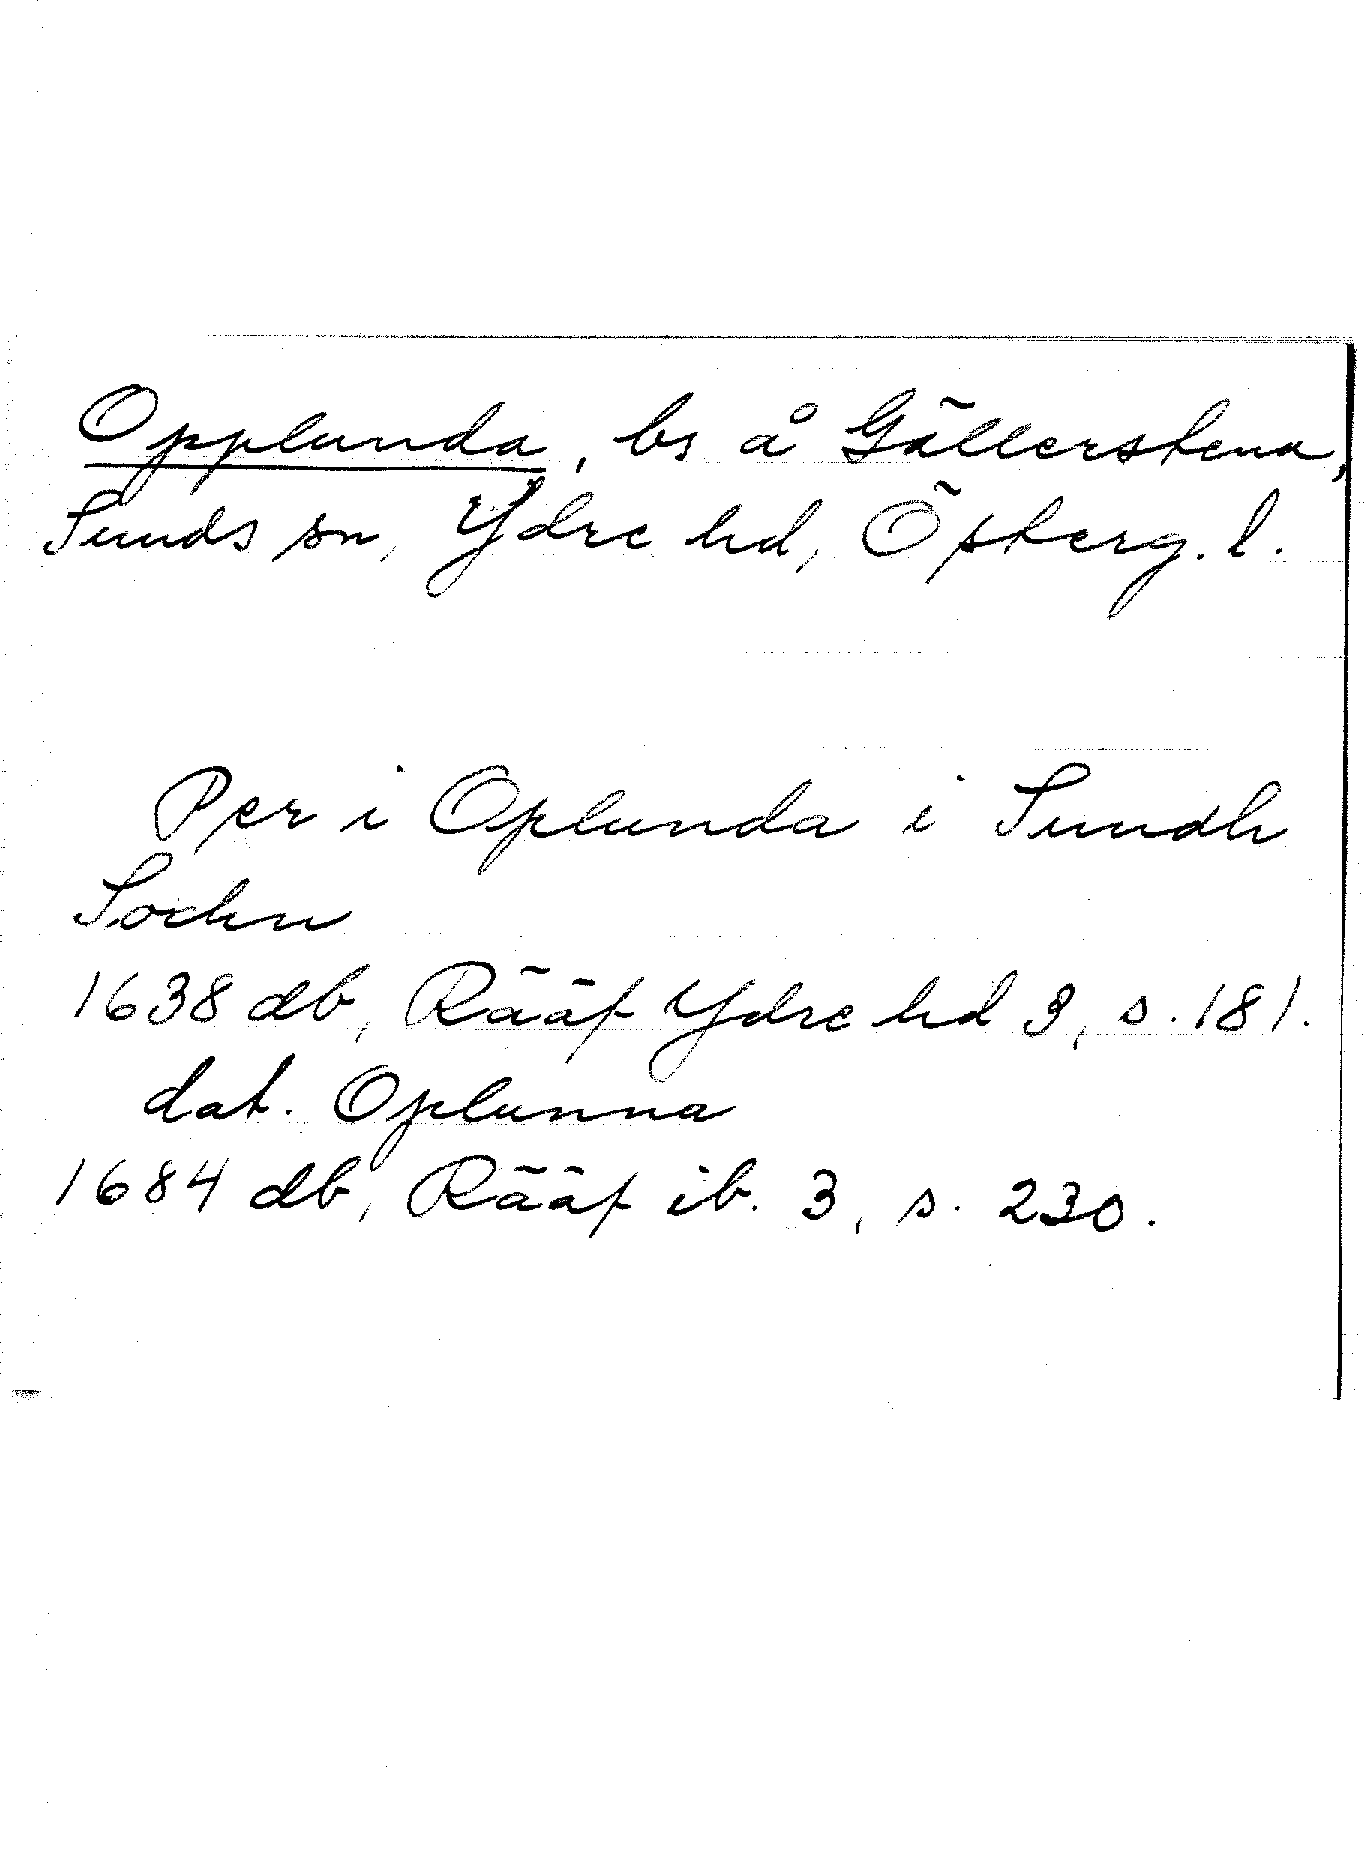 Opplunda, bs å Gällerstena,
Sunds sn, Ydre hd, Österg. l.
Per i Oplunda i Sundh
Sochn
1638 db, Rääf Ydre hd 3, s. 181.
dat. Oplunna
1684 db, Rääf ib. 3, s. 230.